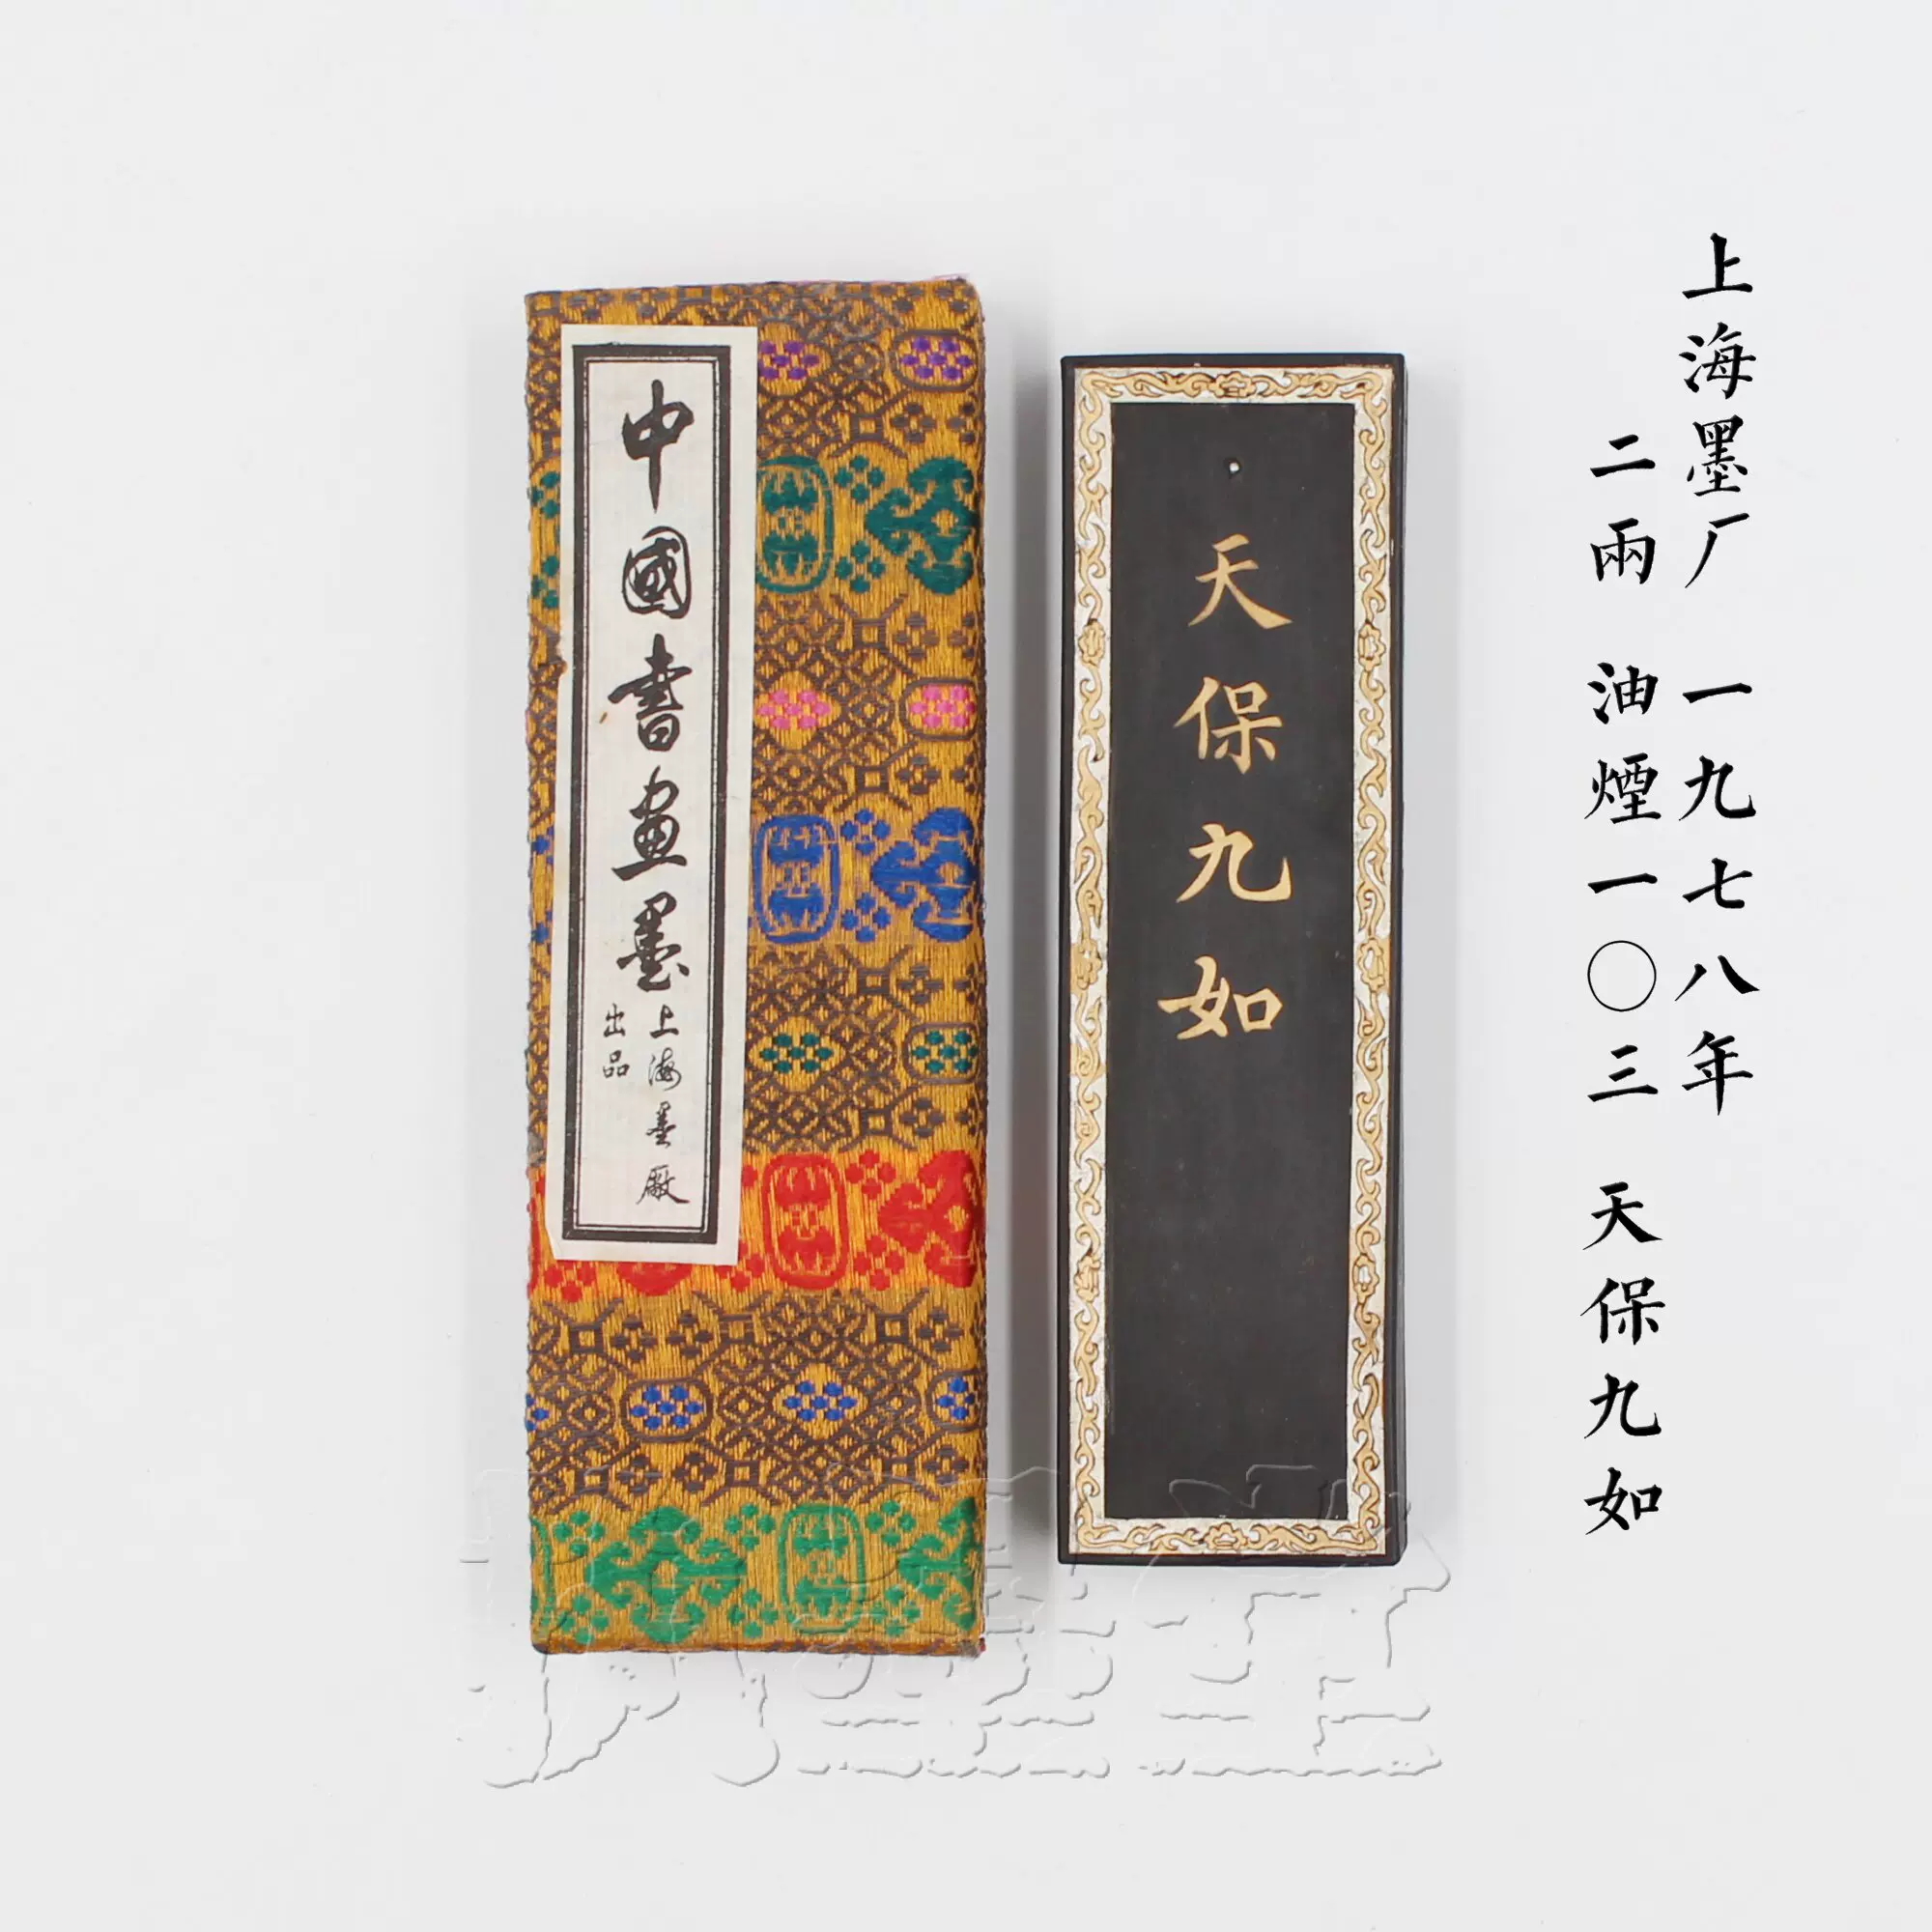 上海墨厂 一九七八年
二兩 油煙一〇三 天保九如
天保九如
中國書畫墨
上海墨廠
出品